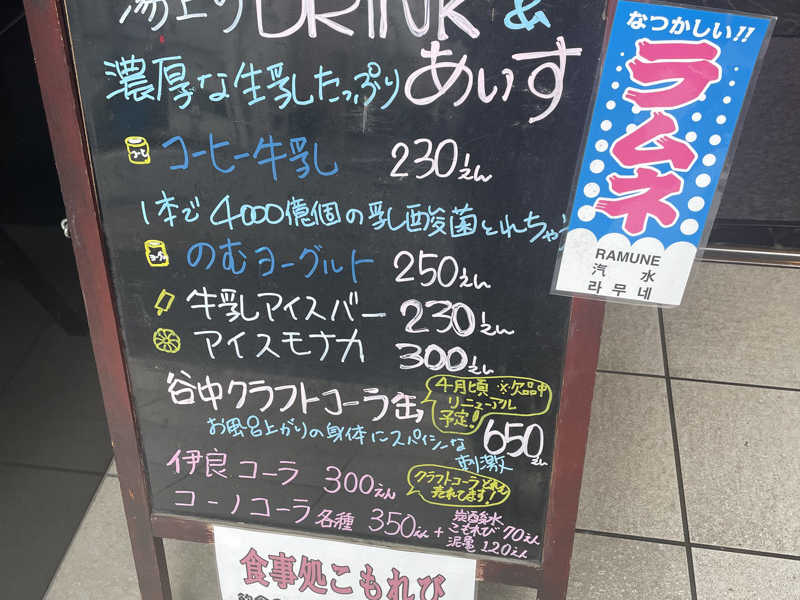 湯上り DRINK &
濃厚な生乳たっぷり あいす
コーヒー牛乳 230えん
1本で4000億個の乳酸菌とれちゃう
のむヨーグルト 250えん
牛乳アイスバー 230えん
アイスモナカ 300えん
谷中クラフトコーラ缶
4月頃 ※欠品中
リニューアル
予定!
お風呂上がりの身体にスパイシーな
刺激
650えん
伊良コーラ 300えん
クラフトコーラ
売れてます!
コーノコーラ各種 350えん +
炭酸水
こもれび 70えん
泥亀 120えん
食事処こもれび
なつかしい!!
ラムネ
RAMUNE
汽水
라무네